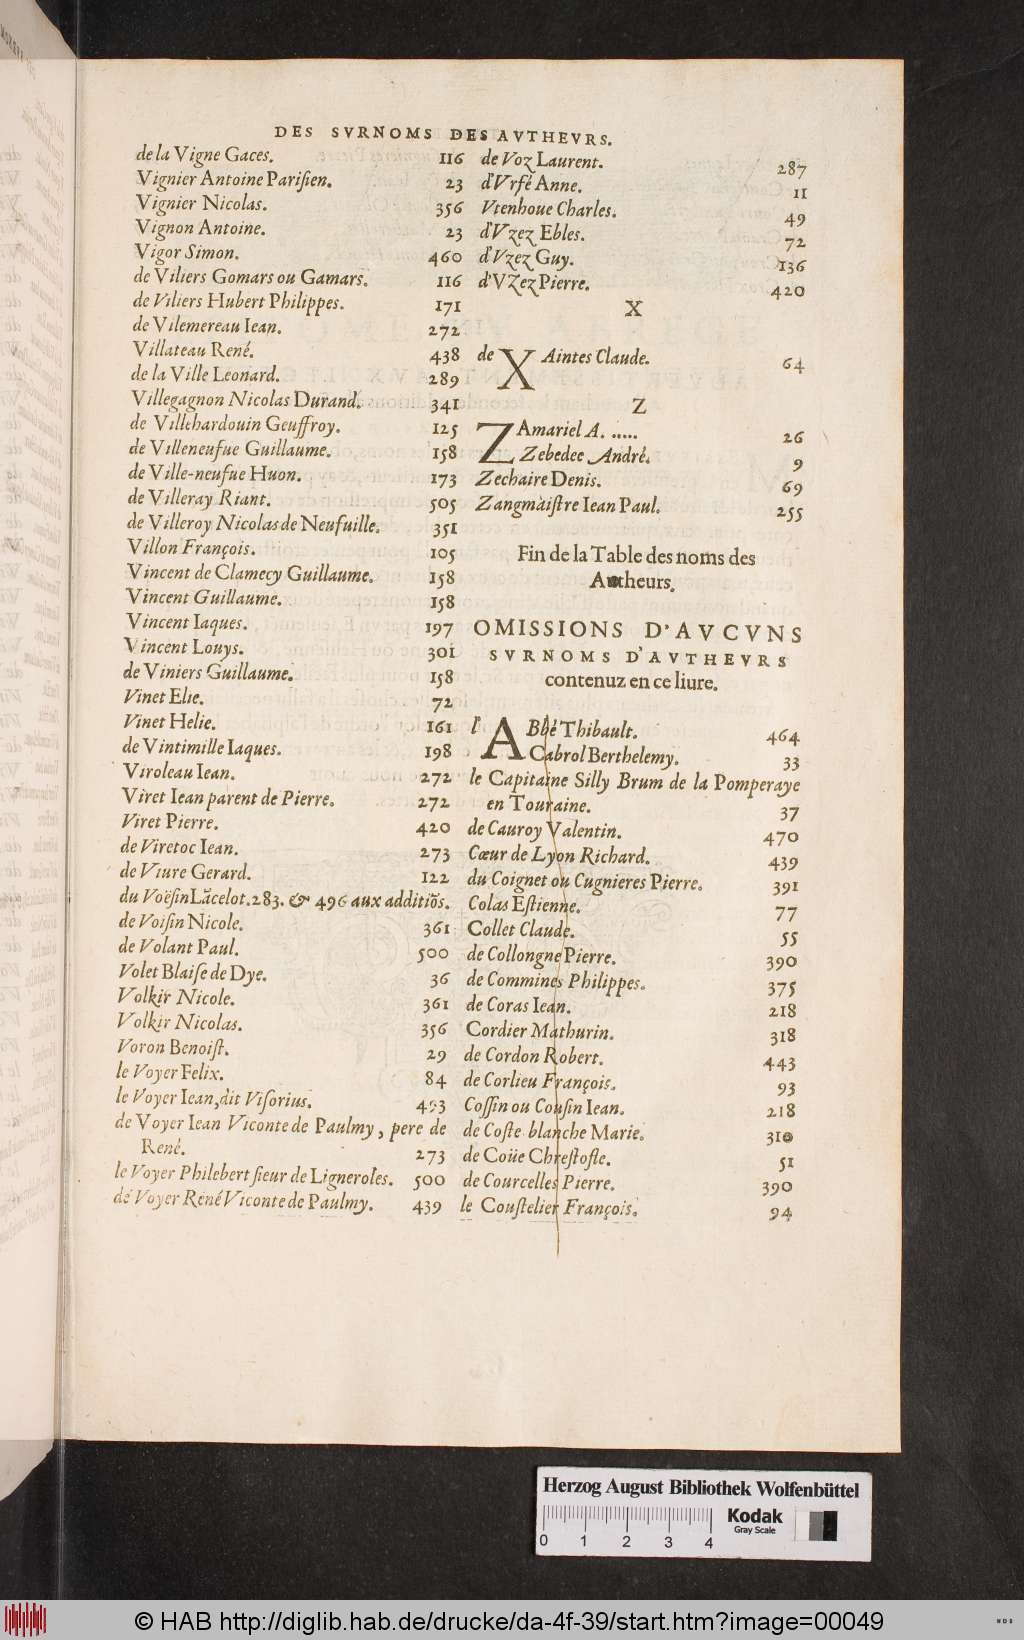 DES SVRNOMS DES AVTHEVRS.
de la Vigne Gaces. 116
Vignier Antoine Pariſien. 23
Vignier Nicolas. 356
Vignon Antoine. 23
Vigor Simon. 460
de Viliers Gomars ou Gamars. 116
de Viliers Hubert Philippes. 171
de Vilemereau Iean. 272
Villateau René. 438
de la Ville Leonard. 289
Villegagnon Nicolas Durand. 341
de Villehardouin Geuffroy. 125
de Villeneufue Guillaume. 158
de Ville-neufue Huon. 173
de Villeray Riant. 505
de Villeroy Nicolas de Neufuille. 351
Villon François. 105
Vincent de Clamecy Guillaume. 158
Vincent Guillaume. 158
Vincent Iaques. 197
Vincent Louys. 301
de Viniers Guillaume. 158
Vinet Elie. 72
Vinet Helie. 161
de Vintimille Iaques. 198
Viroleau Iean. 272
Viret Iean parent de Pierre. 272
Viret Pierre. 420
de Viretoc Iean. 273
de Viure Gerard. 122
du Voëſin Lācelot. 283. & 496 aux additiōs.
de Voiſin Nicole. 361
de Volant Paul. 500
Volet Blaiſe de Dye. 36
Volkir Nicole. 361
Volkir Nicolas. 356
Voron Benoiſt. 29
le Voyer Felix. 84
le Voyer Iean, dit Viſorius. 493
de Voyer Iean Viconte de Paulmy, pere de
René. 273
le Voyer Philebert ſieur de Ligneroles. 500
de Voyer René Viconte de Paulmy. 439
de Voz Laurent. 287
d'Vrfé Anne. 11
Vtenhoue Charles. 49
d'Vzez Ebles. 72
d'Vzez Guy. 136
d'VZez Pierre. 420
X
de XAintes Claude. 64
Z
ZAmariel A. ..... 26
Zebedee André. 9
Zechaire Denis. 69
Zangmaiſtre Iean Paul. 255
Fin de la Table des noms des
Autheurs.
OMISSIONS D'AVCVNS
SVRNOMS D'AVTHEVRS
contenuz en ce liure.
l'ABbé Thibault. 464
Cabrol Berthelemy. 33
le Capitaine Silly Brum de la Pomperaye
en Touraine. 37
de Cauroy Valentin. 470
Cœur de Lyon Richard. 439
du Coignet ou Cugnieres Pierre. 391
Colas Eſtienne. 77
Collet Claude. 55
de Collongne Pierre. 390
de Commines Philippes. 375
de Coras Iean. 218
Cordier Mathurin. 318
de Cordon Robert. 443
de Corlieu François. 93
Coſſin ou Couſin Iean. 218
de Coſte blanche Marie. 310
de Coüe Chreſtofle. 51
de Courcelles Pierre. 390
le Couſtelier François. 94
Herzog August Bibliothek Wolfenbüttel
0 1 2 3 4
Kodak
Gray Scale
© HAB http://diglib.hab.de/drucke/da-4f-39/start.htm?image=00049